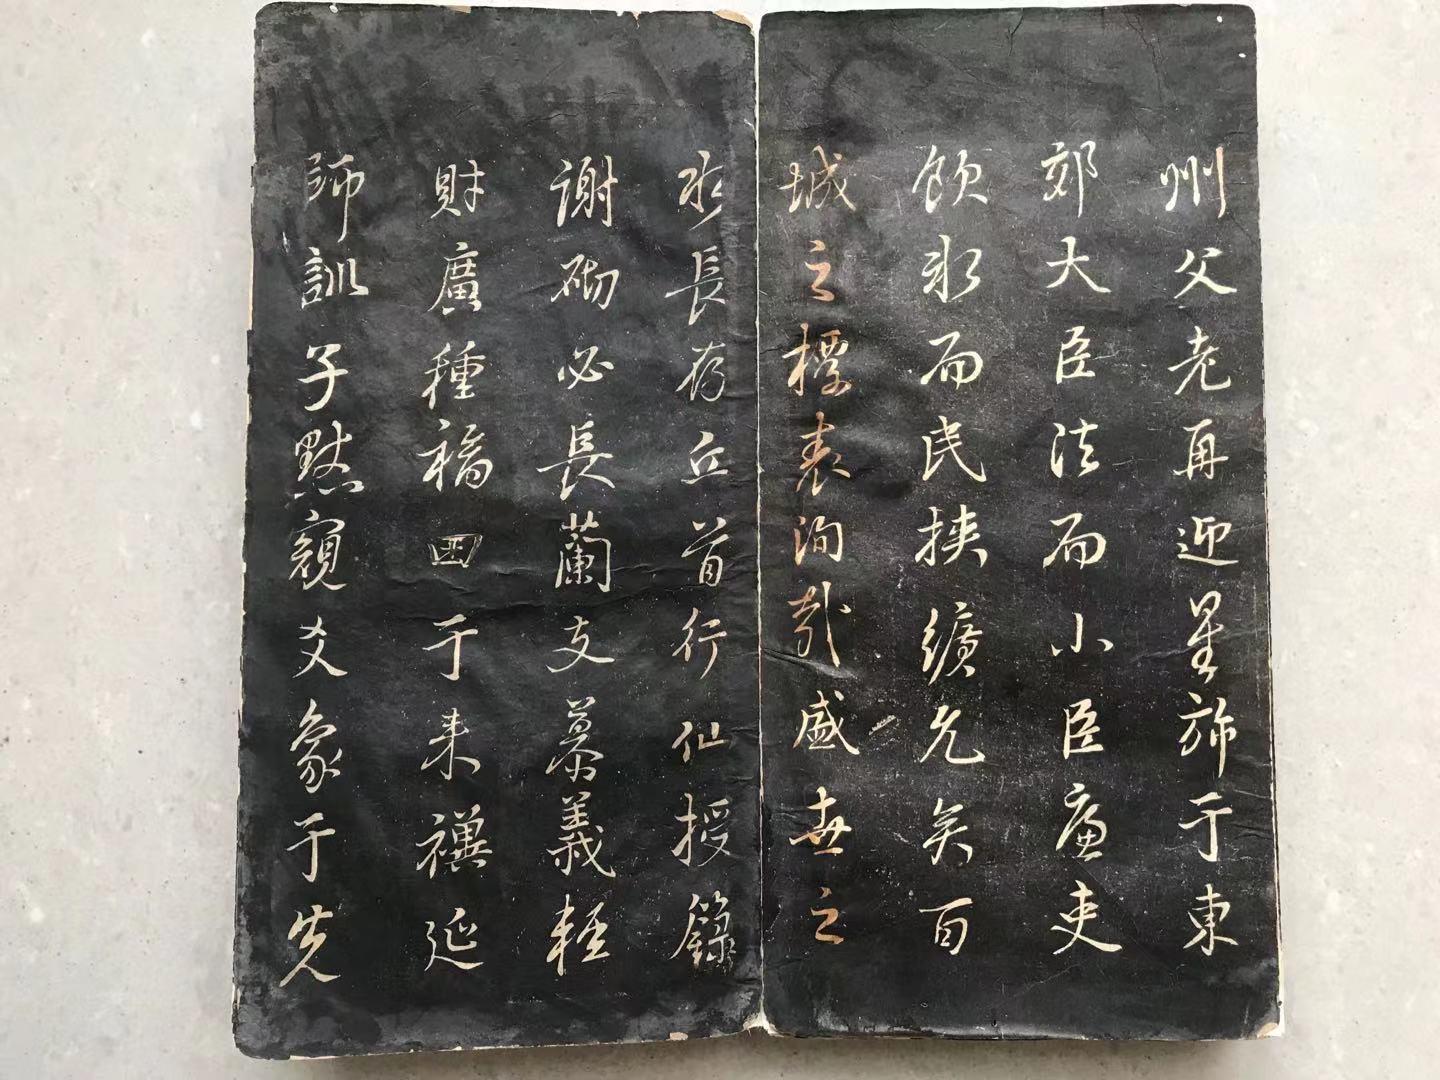 州父老再迎星旆于東
郊大臣法而小臣廉吏
飲氷而民挾纊允矣百
城之標表洵哉盛世之
長存丘首行仙授籙
謝砌必長蘭支慕義輕
財廣種福田于來禩延
師訓子默窺爻象于先